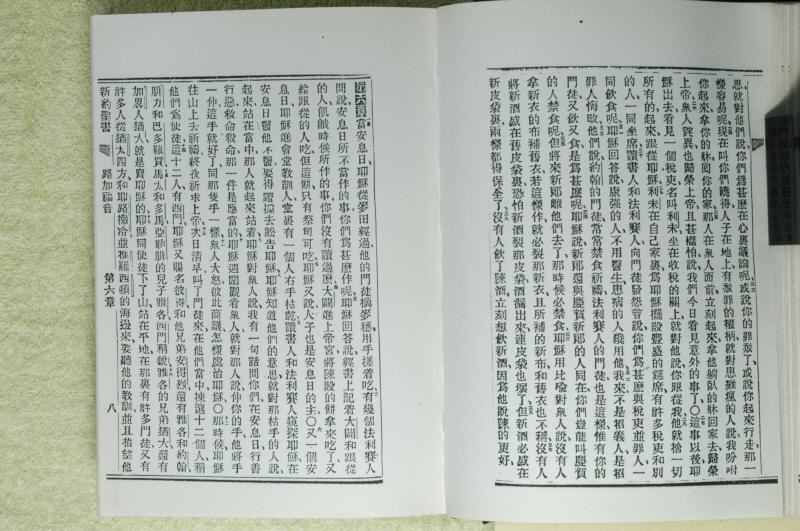 思就對他們說、你們爲甚麽在心裏議論呢、或說你的罪赦了、或說你起來行走、那一
樣容易呢、現在叫你們曉得人子在地上有赦罪的權柄、就對患癱瘋的人說、我吩咐
你起來、拿你的牀囘你的家、那人在衆人面前立刻起來、拿他躺臥的牀囘家去、歸榮
上帝、衆人詫異、也歸榮上帝、且甚懼怕、說我們今日看見意外的事了○這事以後、耶
穌出去、看見一個稅吏、名叫利未、坐在收稅的關上、就對他說、你跟從我、他就捨一切
所有的、起來跟從耶穌、利未在自己家裏、爲耶穌擺設豐盛的筵席、有許多稅吏和別
的人、一同坐席、讀書人和法利賽人向門徒發怨言、說你們爲甚麽與稅吏並罪人一
同飲食呢、耶穌囘答說、康强的人不用醫生、患病的人纔用他、我來不是招義人、是招
罪人悔改、他們說約翰的門徒常常禁食祈禱、法利賽人的門徒也是這樣、惟有你的
門徒又飲又食、是爲甚麽呢、耶穌說、新郎還與慶賀新郎的人同在、你們豈能叫慶賀
的人禁食呢、但將來新郎離他們去了、那時候必禁食、耶穌用比喻對衆人說、沒有人
拿新衣的布補舊衣、若這樣作、就必裂那新衣、且所補的新布和舊衣也不稱、沒有人
將新酒盛在舊皮袋裏、恐怕新酒裂那皮袋、酒漏出來、連皮袋也壞了、但新酒必盛在
新皮袋裏、兩樣都得保全了、沒有人飲了陳酒、立刻想飲新酒、因爲他說陳的更好、
第六章 當安息日、耶穌從麥田經過、他的門徒摘麥穗、用手搓着吃、有幾個法利賽人
問說、安息日所不當作的事、你們爲甚麽作呢、耶穌囘答說、經書上記着大闢和跟從
的人飢餓時候所作的事、你們沒有讀過麽、大闢進上帝宮、將陳設的餅拿來吃了、又
給跟從的人吃、但這餅只有祭司可吃、耶穌又說、人子也是安息日的主○又一個安
息日、耶穌進會堂敎訓人、堂裏有一個人右手枯乾、讀書人和法利賽人窺探耶穌在
安息日醫他不醫、要得證據去訟告耶穌、耶穌知道他們的意思、就對那枯手的人說、
起來站在當中、那人就起來站着、耶穌對衆人說、我有一句話問你們、在安息日行善
行惡、救命殺命、那一件是應當的、耶穌週圍觀看衆人、就對那人說、伸你的手、他將手
一伸、這手就好了、同那隻手一樣、衆人大怒、彼此商議怎樣處治耶穌○那時候耶穌
往山上去祈禱、終夜祈求上帝、次日淸早、叫了門徒來、在他們當中揀選十二個人、稱
他們爲使徒、這十二人有西門、耶穌又賜名彼得、和他兄弟安得烈、還有雅各和約翰
腓力和巴多羅買、馬太和多馬、亞勒腓的兒子雅各、西門稱銳、雅各的兄弟猶大、還有
加畧人猶大、就是賣耶穌的、耶穌同使徒下了山、站在平地、在那裏有許多門徒、又有
許多人從猶太四方和耶路撒冷、並推羅西頓的海邊來、要聽他的敎訓、並且指望他
新約聖書 路加福音 第六章 八